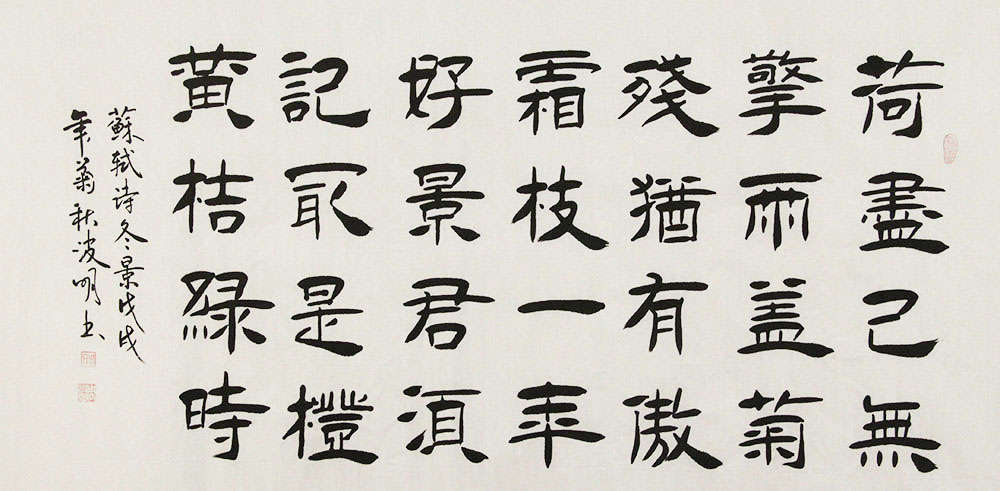 荷盡已無
擎雨盖菊
殘猶有傲
霜枝一年
好景君須
記取是橙
黄桔綠時
蘇軾诗冬景戊戌
年菊秋波明书